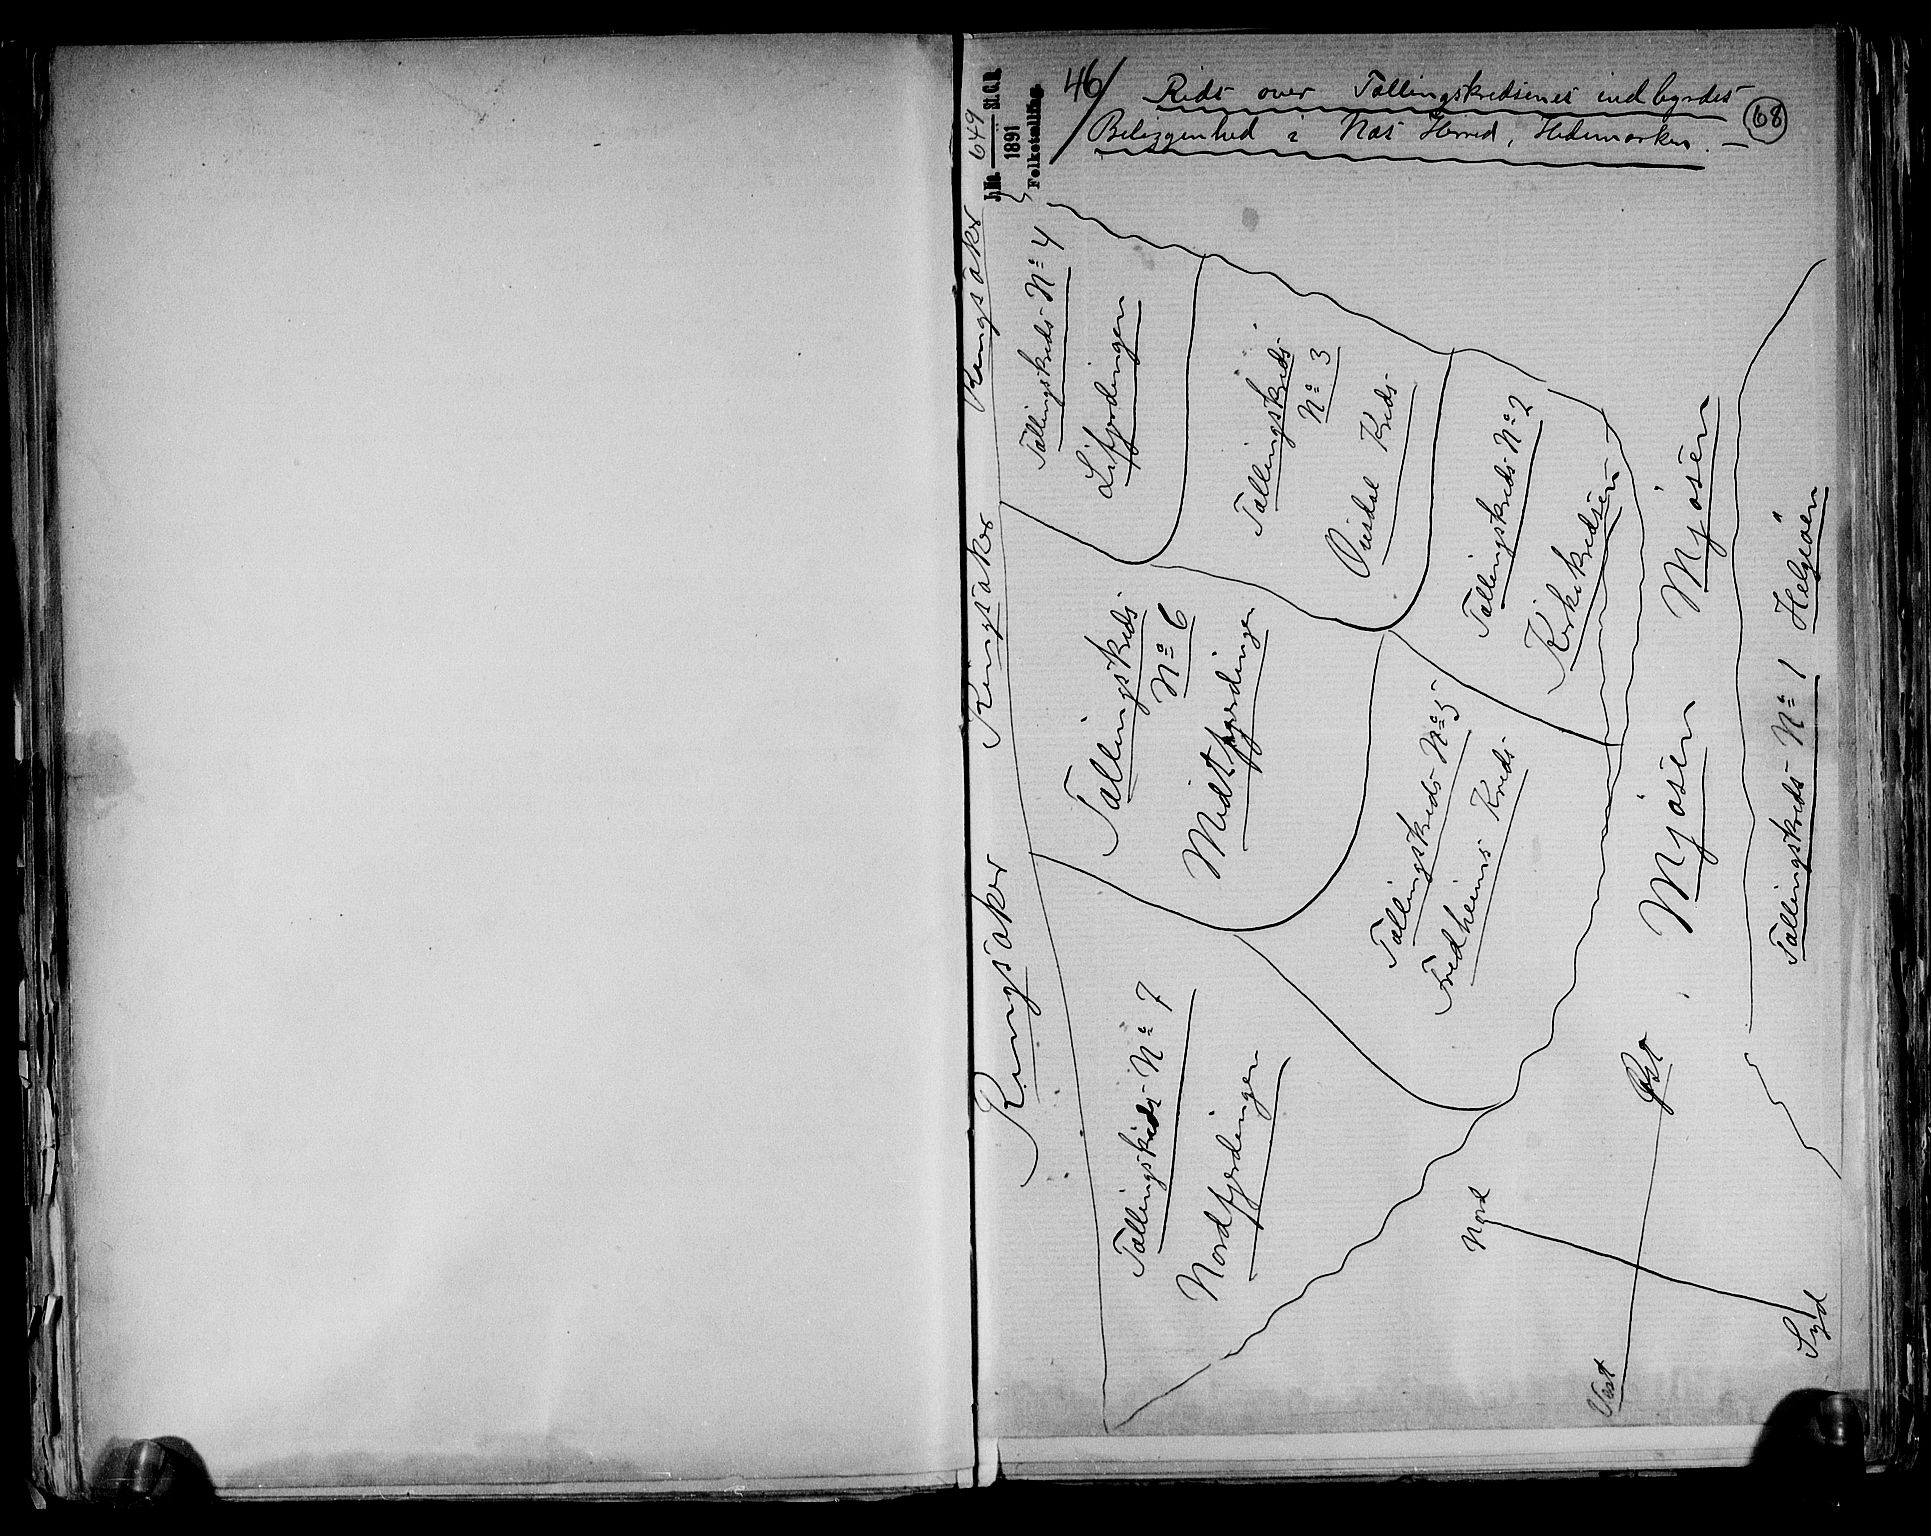 46/
Rids over Tællingskredsenes indbyrdes
Beliggenhed i Næs Herred, Hedemarken. —
68
J. No. 649 St. C. B.
1891
Folketælling.
Ringsaker
Ringsaker
Ringsaker
Tællingskreds No 4
Litfjerdingen
Tællingskreds
No 3
Kreds
Tællingskreds No 2
Kirkekredsen
Tællingskreds
No 6
Midtfjerdingen
Tællingskreds No 5
Fredheims Kreds
Tællingskreds No 7
Nordfjerdingen
Mjøsen
Mjøsen
Tællingskreds No 1 Helgøen
Nord
Øst
Syd
Vest